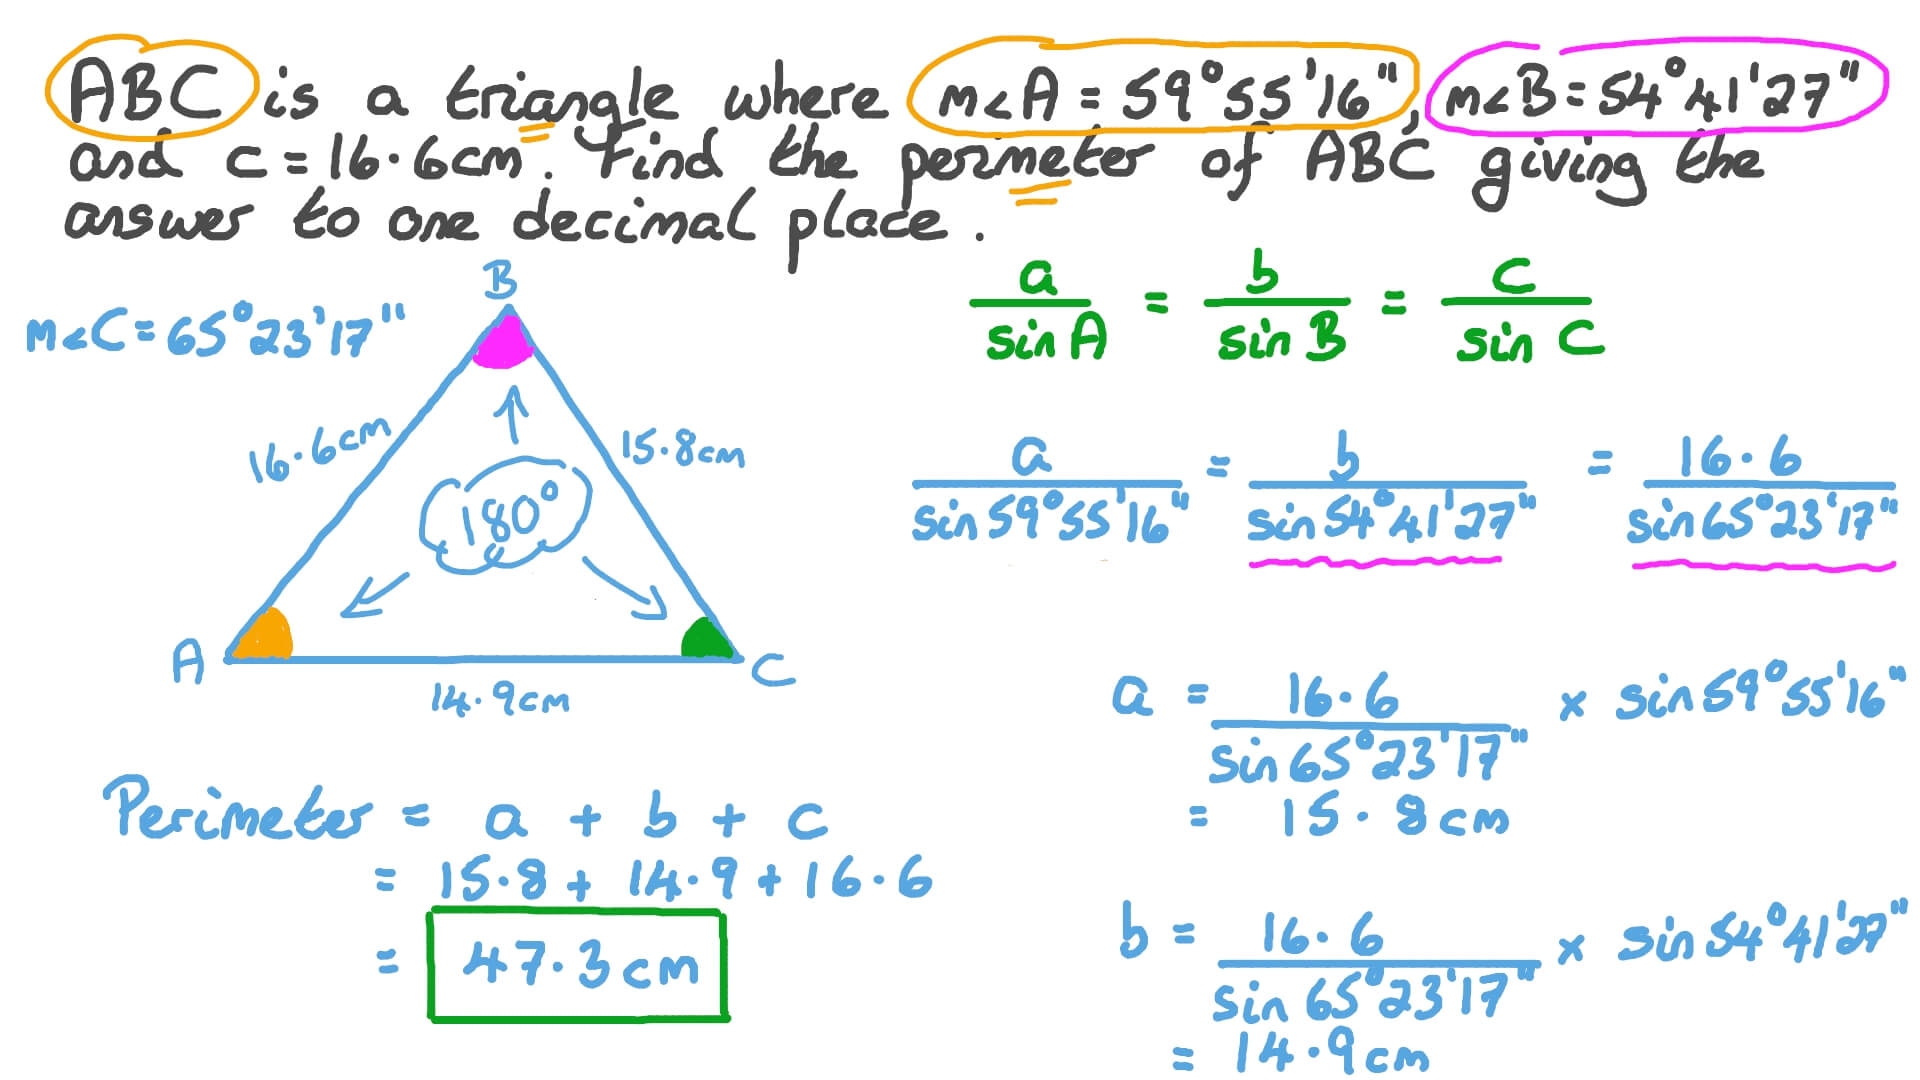 ABC is a triangle where m<A = 59°55'16", m<B = 54°41'27"
and c = 16.6cm. Find the perimeter of ABC giving the
answer to one decimal place.
m<C = 65°23'17"
B
16.6cm
15.8cm
180°
A
C
14.9cm
a/sin A = b/sin B = c/sin C
a/sin 59°55'16" = b/sin 54°41'27" = 16.6/sin 65°23'17"
a = 16.6/sin 65°23'17" × sin 59°55'16"
= 15.8cm
b = 16.6/sin 65°23'17" × sin 54°41'27"
= 14.9cm
Perimeter = a + b + c
= 15.8 + 14.9 + 16.6
= 47.3cm